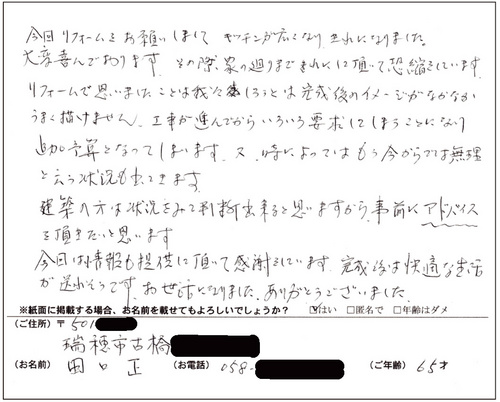 今回リフォームをお願いしまして キッチンが広くなり きれいになりました。
大変喜んでおります。その際、家の廻りまできれいにして頂いて恐縮しています。
リフォームで思いましたことは我々しろうとは完成後のイメージがなかなか
うまく描けません。工事が進んでからいろいろ要求してしまうことになり
追加予算となってしまいます。又、時によってはもう今からでは無理
と云う状況も出てきます。
建築の方は状況をみて判断出来ると思いますから、事前にアドバイス
を頂きたいと思います
今回は情報も提供して頂いて感謝しています。完成後は快適な生活
が送れそうです。お世話になりました。ありがとうございました。
※紙面に掲載する場合、お名前を載せてもよろしいでしょうか? ☑はい □匿名で □年齢はダメ
(ご住所) 〒 501
瑞穂市古橋
(お名前) 田口 正 (お電話) 058- (ご年齢) 65才